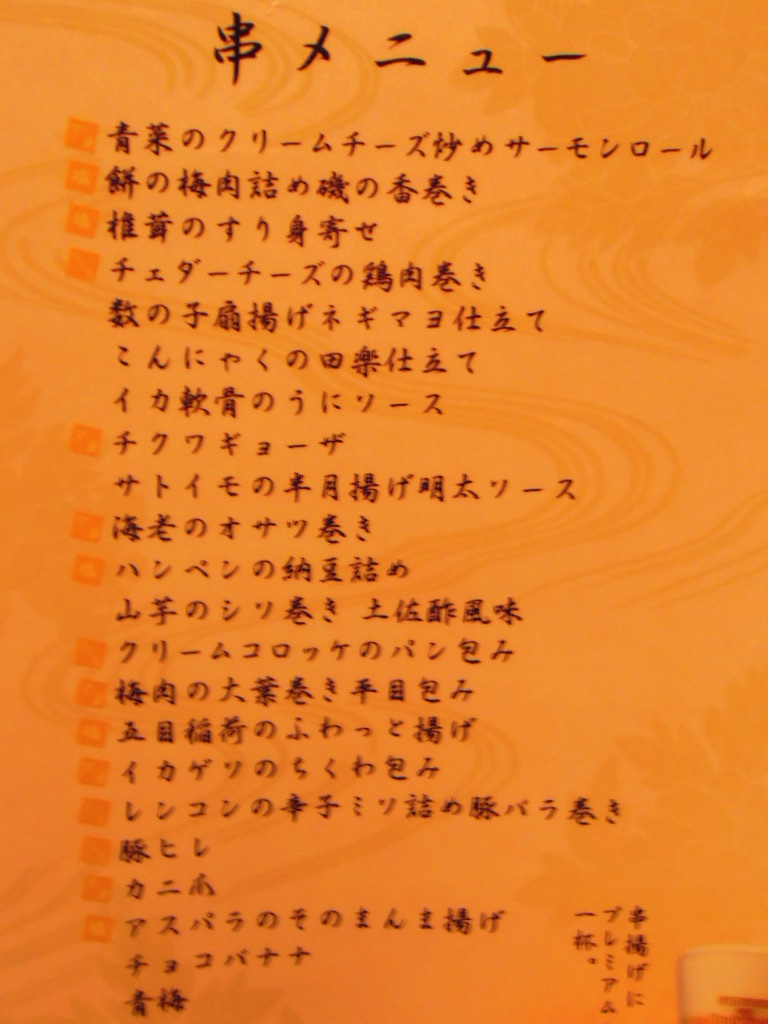 串メニュー
青菜のクリームチーズ炒めサーモンロール
餅の梅肉詰め磯の香巻き
椎茸のすり身寄せ
チェダーチーズの鶏肉巻き
数の子扇揚げネギマヨ仕立て
こんにゃくの田楽仕立て
イカ軟骨のうにソース
チクワギョーザ
サトイモの半月揚げ明太ソース
海老のオサツ巻き
ハンペンの納豆詰め
山芋のシソ巻き 土佐酢風味
クリームコロッケのパン包み
梅肉の大葉巻き平目包み
五目稲荷のふわっと揚げ
イカゲソのちくわ包み
レンコンの辛子ミソ詰め豚バラ巻き
豚ヒレ
カニ爪
アスパラのそのまんま揚げ
チョコバナナ
青梅
串揚げに
プレミアム
一杯。